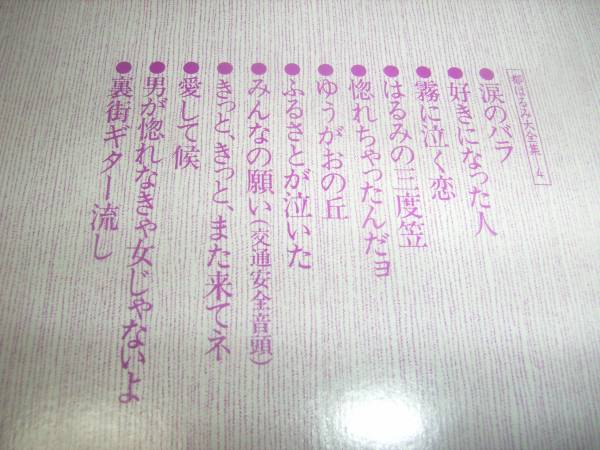 都はるみ大全集 4
●涙のバラ
●好きになった人
●霧に泣く恋
●はるみの三度笠
●惚れちゃったんだョ
●ゆうがおの丘
●ふるさとが泣いた
●みんなの願い(交通安全音頭)
●きっと、きっと、また来てネ
●愛して候
●男が惚れなきゃ女じゃないよ
●裏街ギター流し